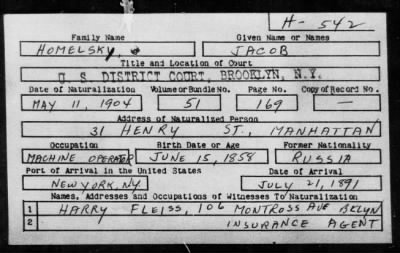 H- 542
Family Name Given Name or Names
HOMELSKY, JACOB
Title and Location of Court
U. S. DISTRICT COURT, BROOKLYN, N.Y.
Date of Naturalization Volume or Bundle No. Page No. Copy of Record No.
MAY 11, 1904 51 169 —
Address of Naturalized Person
31 HENRY ST., MANHATTAN
Occupation Birth Date or Age Former Nationality
MACHINE OPERATOR JUNE 15, 1858 RUSSIA
Port of Arrival in the United States Date of Arrival
NEW YORK, NY JULY 21, 1891
Names, Addresses and Occupations of Witnesses To Naturalization
1 HARRY FLEISS, 106 MONTROSS AVE BKLYN
2 INSURANCE AGENT